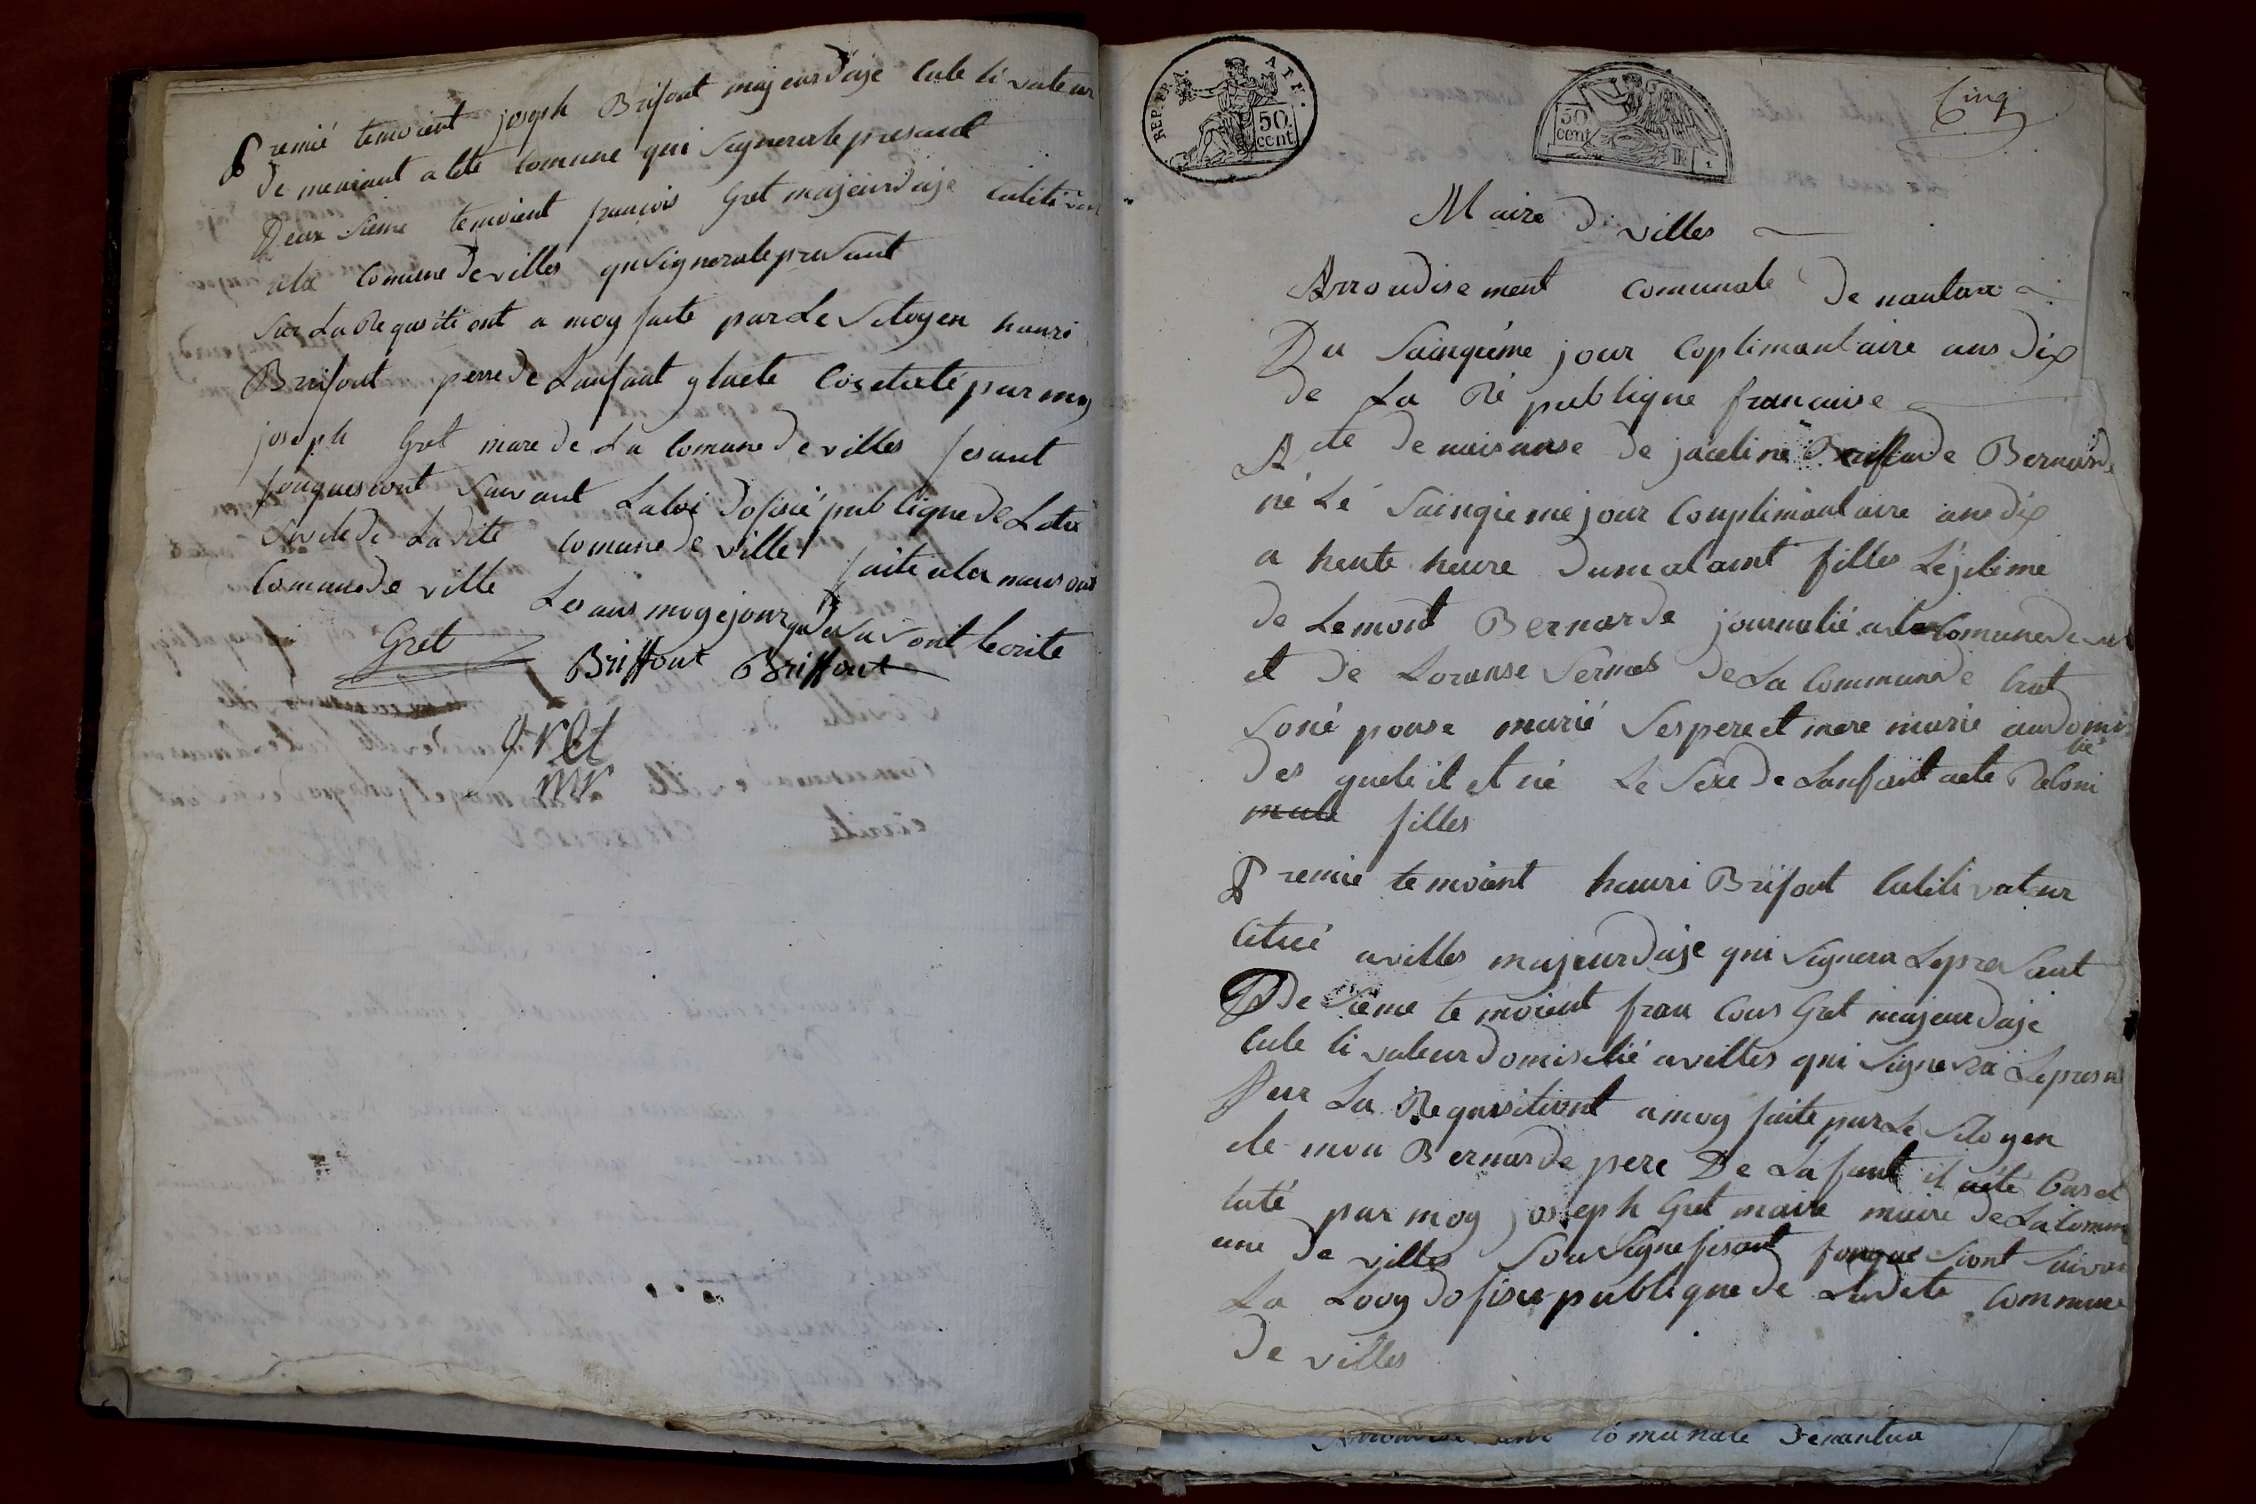 Premié temoient joseph Brifout majeur d'aje Culetivateur
de meurant a lete Comune qui Signera le presand
Deux Sieme temoient francois Gret majeur d'aje Culetivat
ala Comune de villes qui Signera le presant
Sur La Requisiti ont a moy faite par Le Sitoyen hanri
Brifout perre de Lanfant y luete Constaté par moy
joseph Gret mare de La Comune de villes fesant
fonques iont Suivant La loi dofisié publique de Leta
Sivile de Ladite Comune de ville faite ala maison
Comune de ville Les ans moy e jour que desus ont écrite
Gret Briffout Briffout
gret
mr
REP. FRA. 50 cent
50 cent
Cinq
Maire de villes
Arrondisement Comunale de nantua
Du Sainqième jour Coplimantaire ans dix
de La Ré publique francaise
Acte de naisanse de jaceline Bernarde
né Le Sainqieme jour Couplimantaire ans dix
a hente heure du mataint filles Léjitime
de Lemont Bernarde journalié ala Comune de
et de Loranse Sermet de La Commune de
Soné pouse marié Ses pere et mere marie au domi
lié
des quele il et né Le Sexe de Lanfant aete
male filles
Premié temoient hanri Brifout Culetivateur
Citué a villes majeur d'aje qui Signera Le presant
De Sieme te moient fran Cois Gret majeur d'aje
Cule tivateur domisilié a villes qui Signera Le presan
Sur La Requisitiont a moy faite par Le Sitoyen
cle mon Bernarde pere De Lafant il aété Const
taté par moy joseph Gret maire maire de La Comm
une de villes Sou Signe fesant fonque Siont Suivan
La Looy dofisie publique de Ladite Commune
de villes
Comunale De nantua